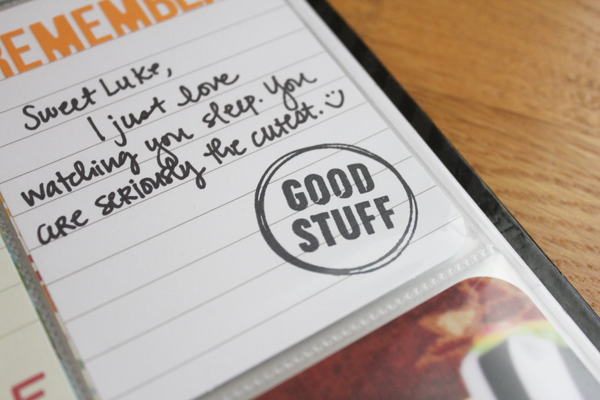 REMEMBER
Sweet Luke,
I just love
watching you sleep. You
are seriously the cutest. :)
GOOD
STUFF